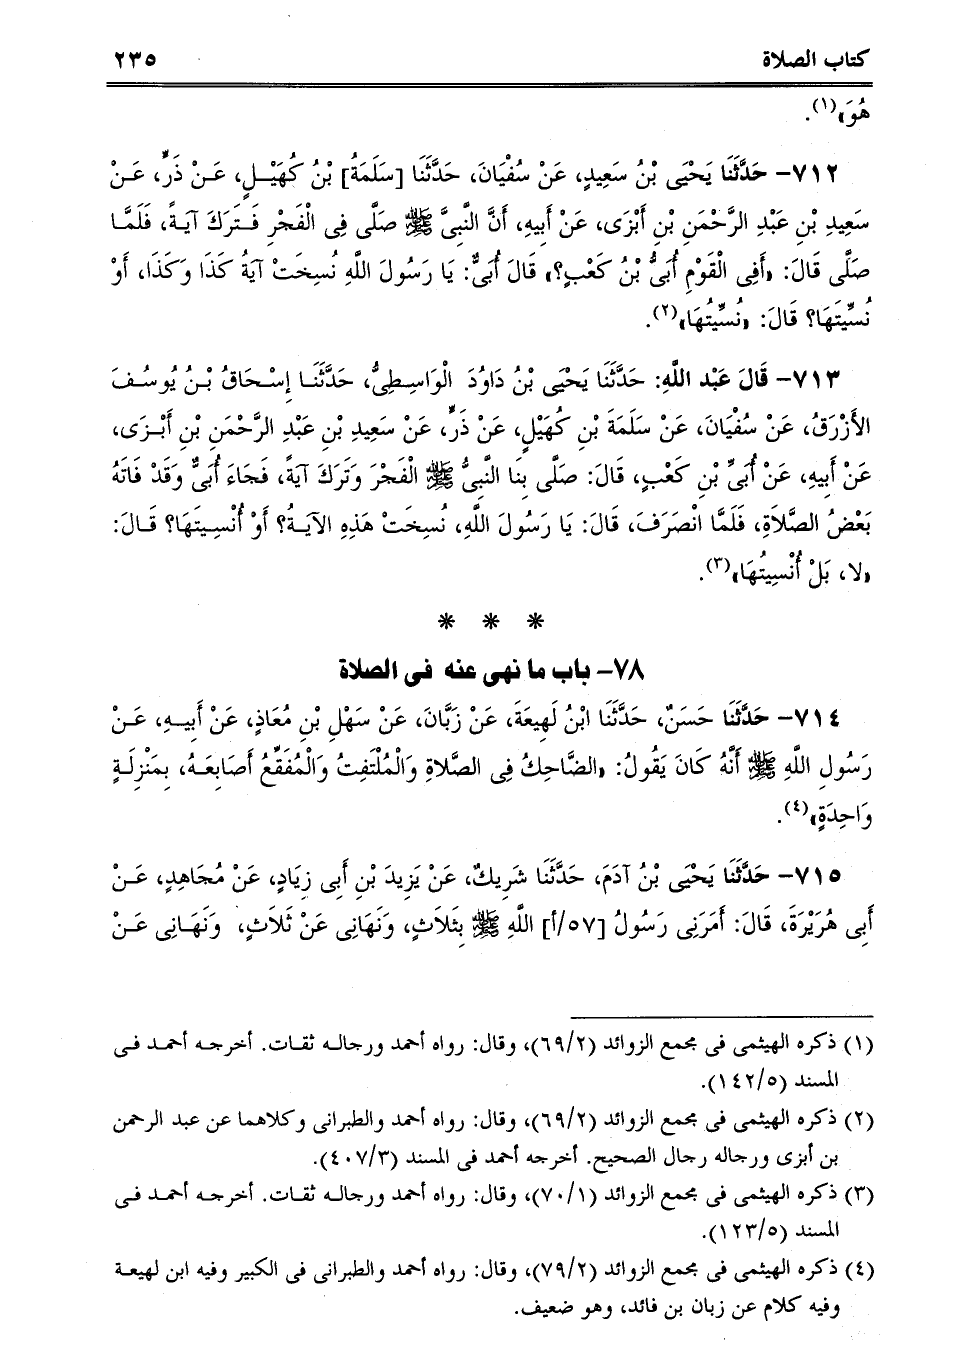 كتاب الصلاة ٢٣٥
هُوَ»(١).
٧١٢- حَدَّثَنَا يَحْيَى بْنُ سَعِيدٍ، عَنْ سُفْيَانَ، حَدَّثَنَا [سَلَمَةُ] بْنُ كُهَيْلٍ، عَنْ ذَرٍّ، عَنْ
سَعِيدِ بْنِ عَبْدِ الرَّحْمَنِ بْنِ أَبْزَى، عَنْ أَبِيهِ، أَنَّ النَّبِيَّ ﷺ صَلَّى فِى الْفَجْرِ فَتَرَكَ آيَةً، فَلَمَّا
صَلَّى قَالَ: «أَفِى الْقَوْمِ أُبَىُّ بْنُ كَعْبٍ؟» قَالَ أُبَىٌّ: يَا رَسُولَ اللَّهِ نُسِخَتْ آيَةُ كَذَا وَكَذَا، أَوْ
نُسِّيتَهَا؟ قَالَ: «نُسِّيتُهَا»(٢).
٧١٣- قَالَ عَبْد اللَّهِ: حَدَّثَنَا يَحْيَى بْنُ دَاوُدَ الْوَاسِطِىُّ، حَدَّثَنَا إِسْحَاقُ بْنُ يُوسُفَ
الأَزْرَقُ، عَنْ سُفْيَانَ، عَنْ سَلَمَةَ بْنِ كُهَيْلٍ، عَنْ ذَرٍّ، عَنْ سَعِيدِ بْنِ عَبْدِ الرَّحْمَنِ بْنِ أَبْزَى،
عَنْ أَبِيهِ، عَنْ أُبَىِّ بْنِ كَعْبٍ، قَالَ: صَلَّى بِنَا النَّبِىُّ ﷺ الْفَجْرَ وَتَرَكَ آيَةً، فَجَاءَ أُبَىٌّ وَقَدْ فَاتَهُ
بَعْضُ الصَّلاَةِ، فَلَمَّا انْصَرَفَ، قَالَ: يَا رَسُولَ اللَّهِ، نُسِخَتْ هَذِهِ الآيَةُ؟ أَوْ أُنْسِيتَهَا؟ قَالَ:
«لا، بَلْ أُنْسِيتُهَا»(٣).
* * *
٧٨- باب ما نهى عنه فى الصلاة
٧١٤- حَدَّثَنَا حَسَنٌ، حَدَّثَنَا ابْنُ لَهِيعَةَ، عَنْ زَبَّانَ، عَنْ سَهْلِ بْنِ مُعَاذٍ، عَنْ أَبِيهِ، عَنْ
رَسُولِ اللَّهِ ﷺ أَنَّهُ كَانَ يَقُولُ: «الضَّاحِكُ فِى الصَّلاةِ وَالْمُلْتَفِتُ وَالْمُفَقِّعُ أَصَابِعَهُ، بِمَنْزِلَةٍ
وَاحِدَةٍ»(٤).
٧١٥- حَدَّثَنَا يَحْيَى بْنُ آدَمَ، حَدَّثَنَا شَرِيكٌ، عَنْ يَزِيدَ بْنِ أَبِى زِيَادٍ، عَنْ مُجَاهِدٍ، عَنْ
أَبِى هُرَيْرَةَ، قَالَ: أَمَرَنِى رَسُولُ [٥٧/أ] اللَّهِ ﷺ بِثَلاَثٍ، وَنَهَانِى عَنْ ثَلاَثٍ، وَنَهَانِى عَنْ
(١) ذكره الهيثمى فى مجمع الزوائد (٦٩/٢)، وقال: رواه أحمد ورجاله ثقات. أخرجه أحمد فى
المسند (١٤٢/٥).
(٢) ذكره الهيثمى فى مجمع الزوائد (٦٩/٢)، وقال: رواه أحمد والطبرانى وكلاهما عن عبد الرحمن
بن أبزى ورجاله رجال الصحيح. أخرجه أحمد فى المسند (٤٠٧/٣).
(٣) ذكره الهيثمى فى مجمع الزوائد (٧٠/١)، وقال: رواه أحمد ورجاله ثقات. أخرجه أحمد فى
المسند (١٢٣/٥).
(٤) ذكره الهيثمى فى مجمع الزوائد (٧٩/٢)، وقال: رواه أحمد والطبرانى فى الكبير وفيه ابن لهيعة
وفيه كلام عن زبان بن فائد، وهو ضعيف.